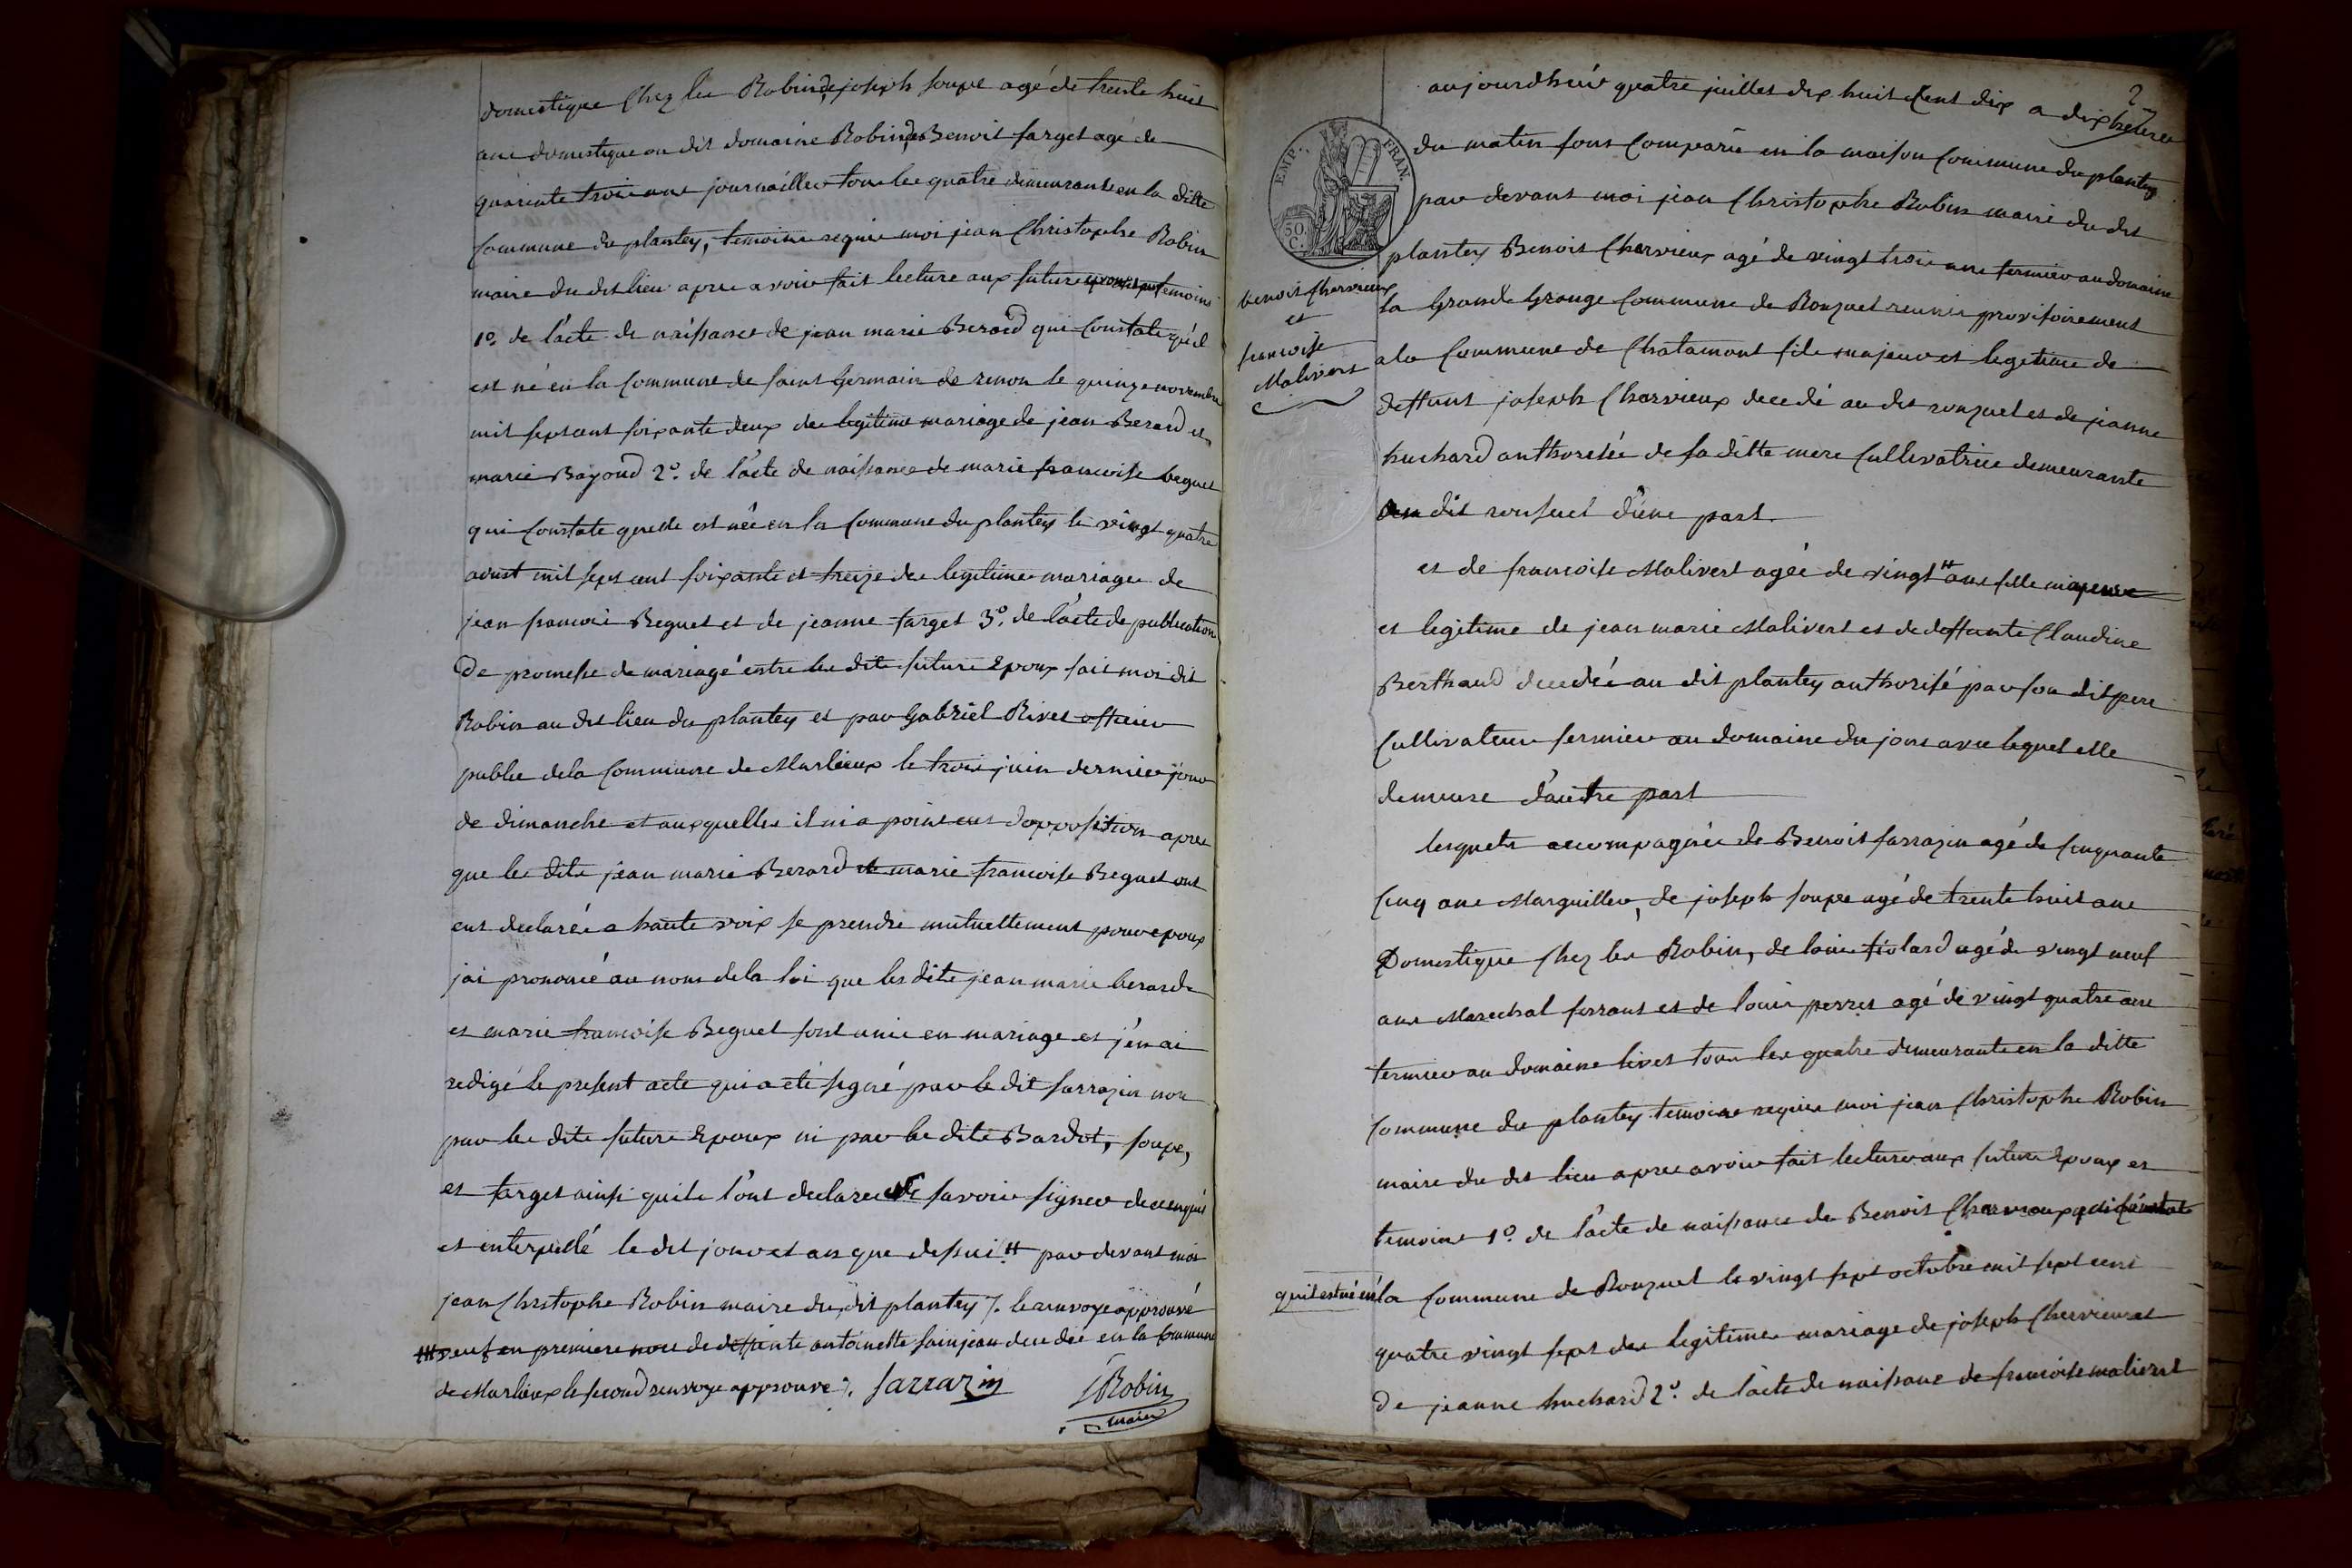 domestique chez les Robin, de joseph soupe agé de trente huit
ans domestique au dit domaine Robin, de Benoit farget agé de
quarente trois ans journaillier tous les quatre demeurants en la ditte
commune du plantey, temoins requis moi jean Christophe Robin
maire du dit lieu apres avoir fait lecture aux futurs epoux et temoins
1º. de l'acte de naissance de jean marie Berard qui constate qu'il
est né en la commune de saint Germain de renon le quinze novembre
mil sept cent soixante deux du legitime mariage de jean Berard et
marie Bayoud 2º. de l'acte de naissance de marie francoise beguet
qui constate quelle est née en la commune du plantey le vingt quatre
aoust mil sept cent soixante et treize du legitime mariage de
jean francois Beguet et de jeanne farget 3º. de l'acte de publication
De promesse de mariage entre les dits futurs Epoux fait moi dit
Robin au dit lieu du plantey et par Gabriel Rives officier
public de la commune de Marlieux le trois juin dernier jour
de dimanche et auxquelles il ni a point eut d'opposition apres
que les dits jean marie Berard et marie francoise Beguet ont
eut declarés a haute voix se prendre mutuellement pour epoux
jai prononcé au nom de la loi que les dits jean marie berard
et marie francoise Beguet sont unis en mariage et j'en ai
redigé le present acte qui a été signé par le dit sarrazin non
par les dits futurs Epoux ni par les dits Bardot, soupe,
et farget ainsi quils l'ont declarés ne savoir signer de ce enquis
et interpellé le dit jour et an que dessus # par devant moi
jean Christophe Robin maire du dit plantey /. le renvoye approuvé
veuf en premiere noce de deffunte antoinette sainjean decedée en la commune
de Marlieux le second renvoye approuvé /. sarrazin JRobin
maire
2
aujourdhuiv quatre juillet dix huit Cent dix a dix heures
du matin sont comparus en la maison commune du plantey
par devant moi jean Christophe Robin maire du dit
plantey Benoit Chervieux agé de vingt trois ans fermier au domaine
la Grande Grange commune de Ronzuel reunis provisoirement
a la commune de Chatamont fils majeur et legitime de
deffunt joseph Chervieux decedé au dit ronzuel et de jeanne
huchard authorisée de sa ditte mere Cultivatrice demeurante
au dit ronsuel d'une part.
et de francoise Malivert agée de vingt # ans fille majeure
et legitime de jean marie Malivert et de deffunte Claudine
Berthaud decedée au dit plantey authorisé par son dit pere
Cultivateur fermier au domaine du jone avec lequel elle
demeure d'autre part
lesquels accompagnés de Benoit sarrazin agé de cinquante
cinq ans Marguiller, de joseph soupe agé de trente huit ans
Domestique chez les Robin, de louis fiolard agé de vingt neuf
ans Marechal ferrant et de louis perret agé de vingt quatre ans
fermier au domaine lives tous les quatre demeurants en la ditte
commune du plantey temoins requis moi jean Christophe Robin
maire du dit lieu apres avoir fait lecture aux futurs Epoux et
temoins 1º. de l'acte de naissance de Benoit Chervieux qui constate
quil est né en la commune de Ronzuel le vingt sept octobre mil sept cent
quatre vingt sept du legitime mariage de joseph Chervieux et
de jeanne huchard 2º. de l'acte de naissance de francoise malivert
EMP. FRAN.
50.
C.
benoit Chervieux
et
francoise
Malivert